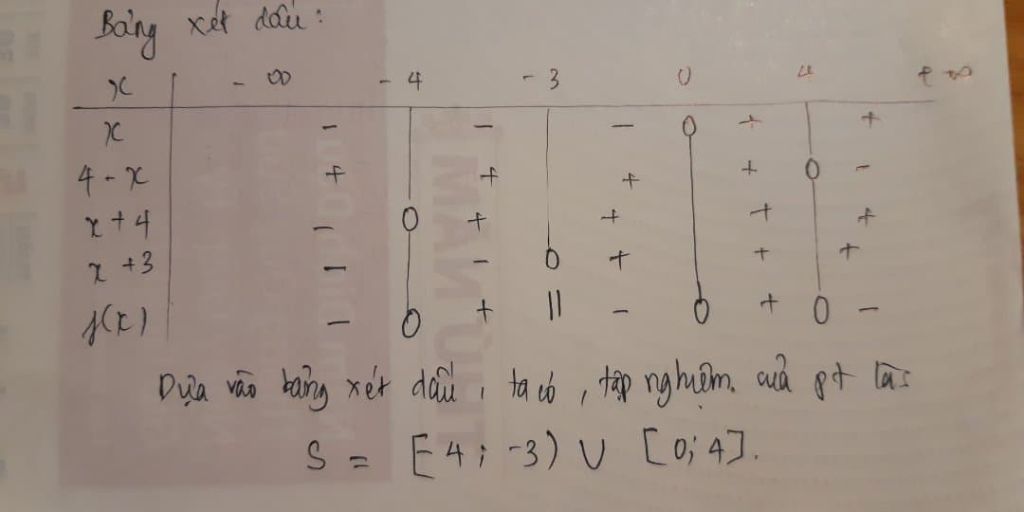 Bảng xét dấu:
x - ∞ - 4 - 3 0 4 + ∞
x - - - 0 + +
4 - x + + + + 0 -
x + 4 - 0 + + + +
x + 3 - - 0 + + +
f(x) - 0 + || - 0 + 0 -
Dựa vào bảng xét dấu, ta có, tập nghiệm của pt là:
S = [-4; -3) ∪ [0; 4].